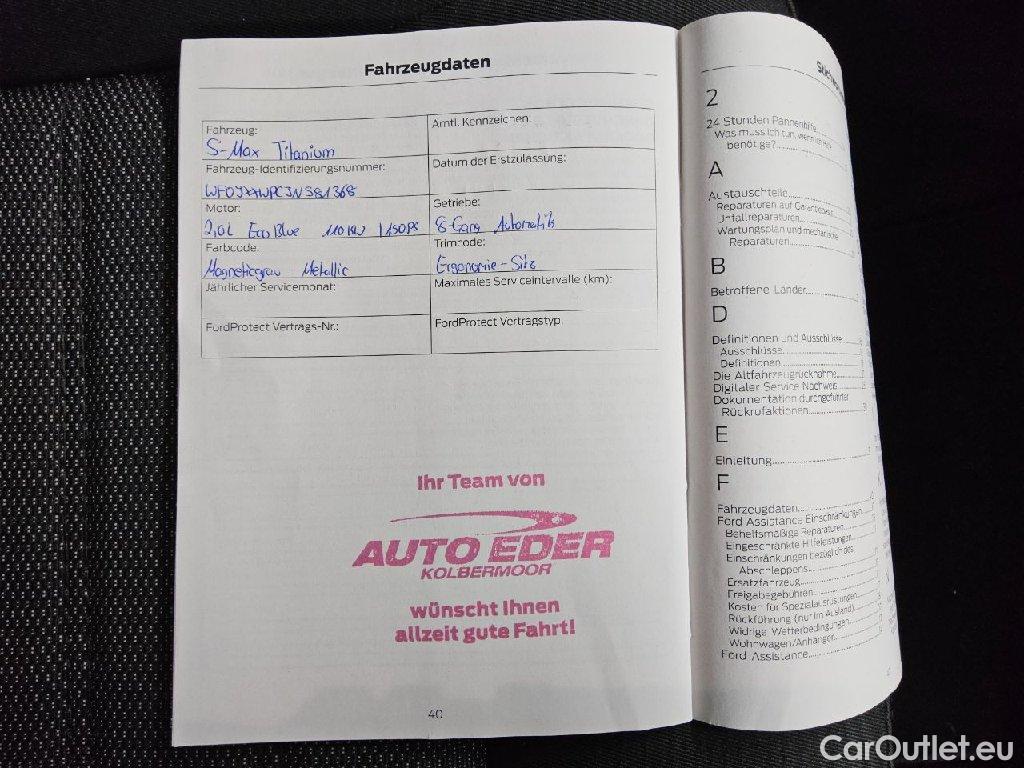 Fahrzeugdaten
Fahrzeug:
S-Max Titanium
Amtl. Kennzeichen:
Fahrzeug-Identifizierungsnummer:
Datum der Erstzulassung:
Motor:
2,0L EcoBlue 110KW / 150PS
Getriebe:
8-Gang Automatik
Farbcode:
Magneticgrau Metallic
Trimcode:
Ergonomie-Sitz
Jährlicher Servicemonat:
Maximales Serviceintervalle (km):
FordProtect Vertrags-Nr.:
FordProtect Vertragstyp:
Ihr Team von
AUTO EDER
KOLBERMOOR
wünscht Ihnen
allzeit gute Fahrt!
40
2
24 Stunden Pannenhilfe
Was muss ich tun, wenn ich Hilfe
benötige?
A
Austauschteile
Reparaturen auf Garantiebasis
Unfallreparaturen
Wartungsplan und mechanische
Reparaturen
B
Betroffene Länder
D
Definitionen und Ausschlüsse
Ausschlüsse
Definitionen
Die Altfahrzeugrücknahme
Digitaler Service Nachweis
Dokumentation durchgeführter
Rückrufaktionen
E
Einleitung
F
Fahrzeugdaten
Ford Assistance Einschränkungen
Behelfsmäßige Reparaturen
Eingeschränkte Hilfeleistungen
Einschränkungen bezüglich des
Abschleppens
Ersatzfahrzeug
Freigabegebühren
Kosten für Spezialausrüstungen
Rückführung (nur im Ausland)
Widrige Wetterbedingungen
Wohnwagen/Anhänger
Ford Assistance
CarOutlet.eu